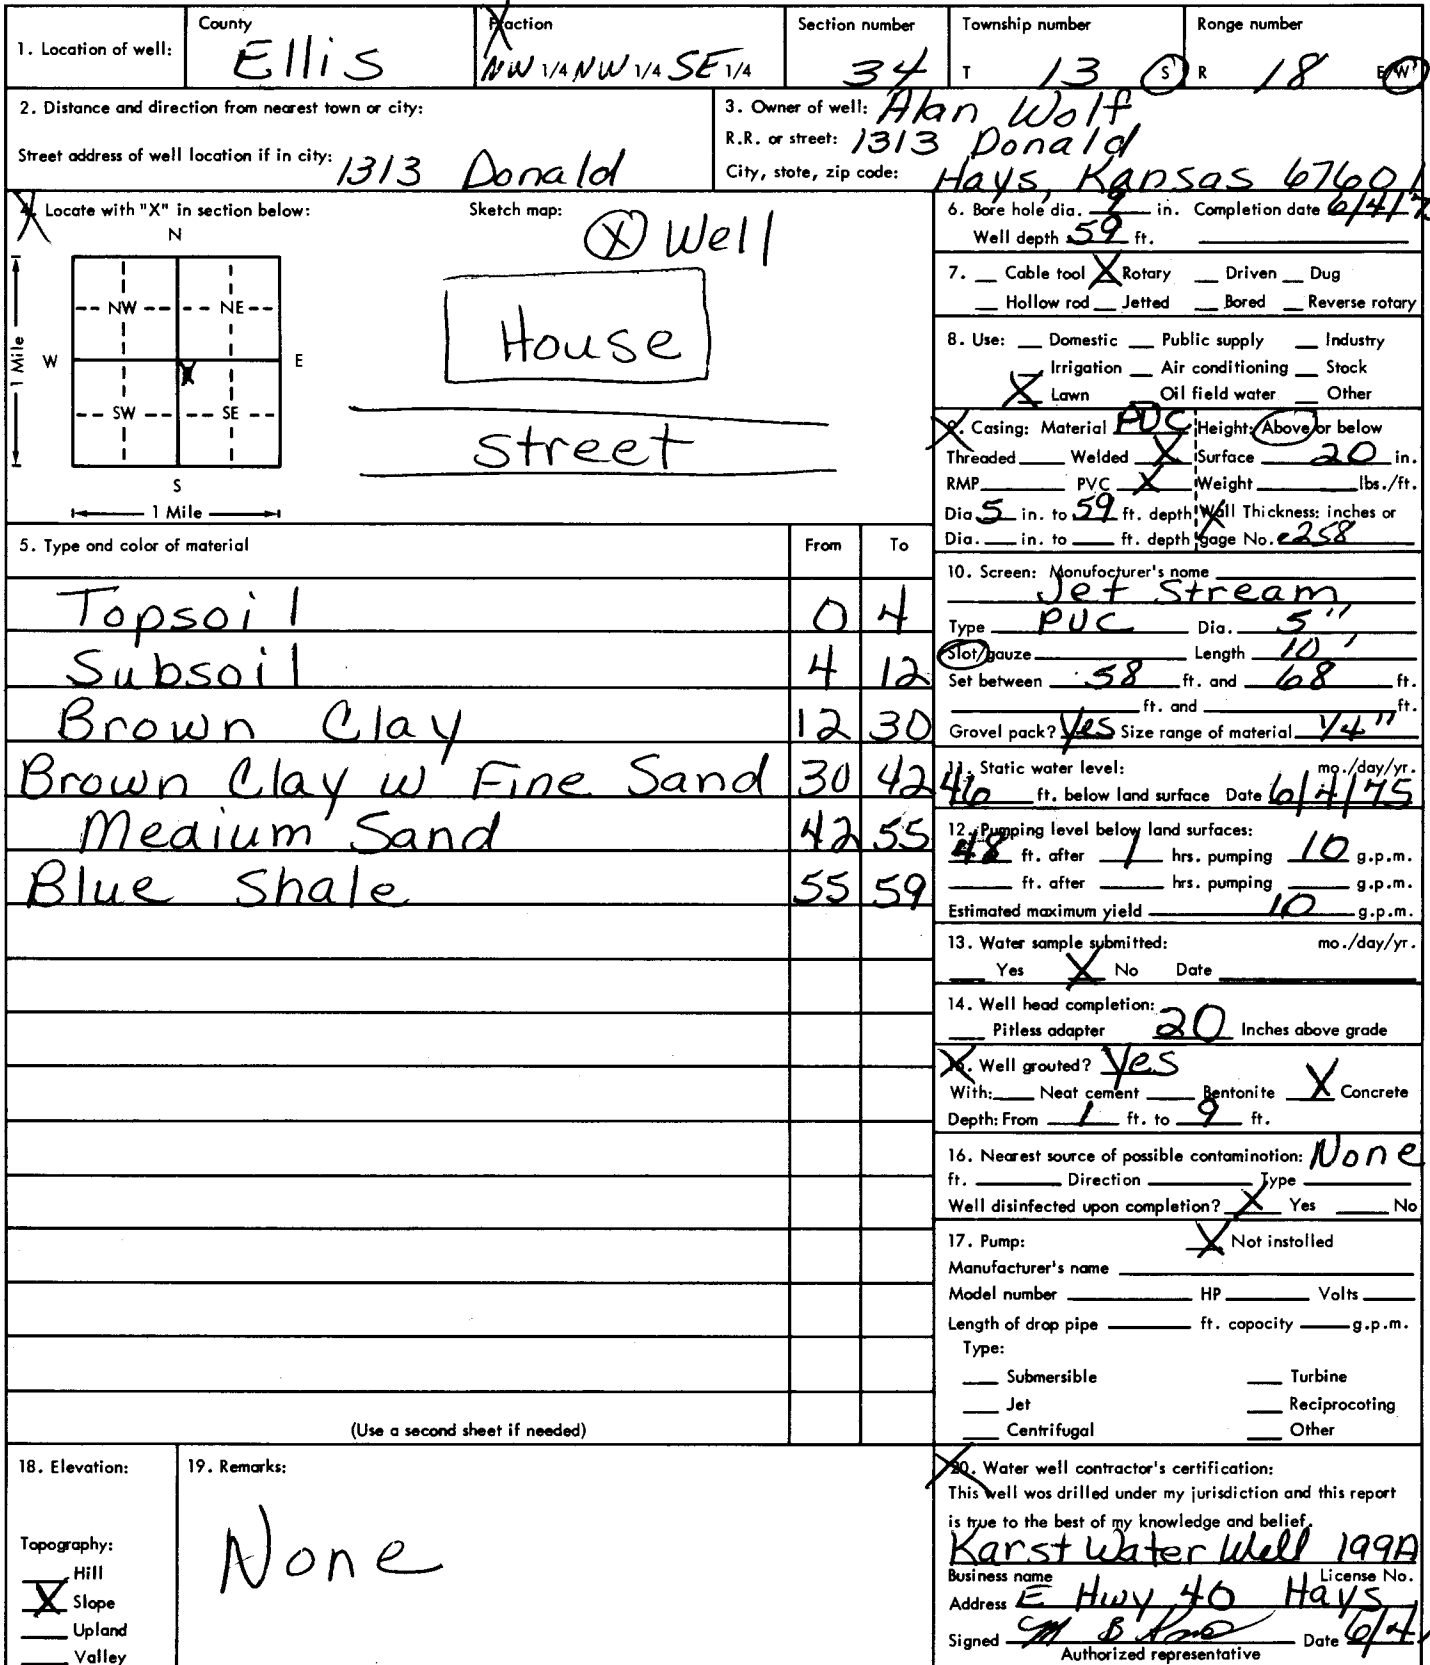 1. Location of well:
County
Ellis
Fraction
NW 1/4 NW 1/4 SE 1/4
Section number
34
Township number
T 13 S
Range number
R 18 E W
2. Distance and direction from nearest town or city:
Street address of well location if in city: 1313 Donald
3. Owner of well: Alan Wolf
R.R. or street: 1313 Donald
City, state, zip code: Hays, Kansas 67601
4. Locate with "X" in section below:
N
NW NE
W E
X
SW SE
S
1 Mile
1 Mile
Sketch map:
X Well
House
Street
5. Type and color of material From To
Topsoil 0 4
Subsoil 4 12
Brown Clay 12 30
Brown Clay w Fine Sand 30 42
Medium Sand 42 55
Blue Shale 55 59
(Use a second sheet if needed)
6. Bore hole dia. 9 in. Completion date 6/4/7
Well depth 59 ft.
7. Cable tool X Rotary Driven Dug
Hollow rod Jetted Bored Reverse rotary
8. Use: Domestic Public supply Industry
Irrigation Air conditioning Stock
X Lawn Oil field water Other
9. Casing: Material PVC Height: Above or below
Threaded Welded X Surface 20 in.
RMP PVC X Weight lbs./ft.
Dia. 5 in. to 59 ft. depth Wall Thickness: inches or
Dia. in. to ft. depth gage No. .258
10. Screen: Manufacturer's name
Jet Stream
Type PVC Dia. 5"
Slot/gauze Length 10'
Set between 58 ft. and 68 ft.
ft. and ft.
Gravel pack? Yes Size range of material 1/4"
11. Static water level: mo./day/yr.
46 ft. below land surface Date 6/4/75
12. Pumping level below land surfaces:
48 ft. after 1 hrs. pumping 10 g.p.m.
ft. after hrs. pumping g.p.m.
Estimated maximum yield 10 g.p.m.
13. Water sample submitted: mo./day/yr.
Yes X No Date
14. Well head completion:
Pitless adapter 20 Inches above grade
15. Well grouted? Yes
With: Neat cement Bentonite X Concrete
Depth: From 1 ft. to 9 ft.
16. Nearest source of possible contamination: None
ft. Direction Type
Well disinfected upon completion? X Yes No
17. Pump: X Not installed
Manufacturer's name
Model number HP Volts
Length of drop pipe ft. capacity g.p.m.
Type:
Submersible Turbine
Jet Reciprocating
Centrifugal Other
18. Elevation:
Topography:
Hill
X Slope
Upland
Valley
19. Remarks:
None
20. Water well contractor's certification:
This well was drilled under my jurisdiction and this report
is true to the best of my knowledge and belief.
Karst Water Well 199A
Business name License No.
Address E Hwy 40 Hays
Signed Date 6/4/
Authorized representative